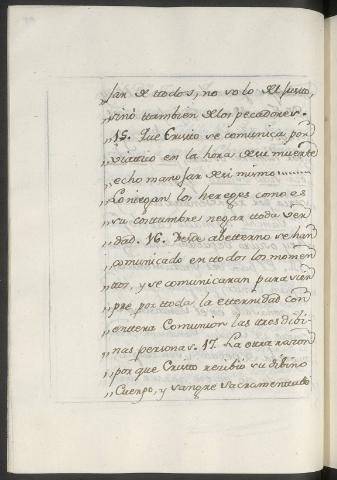 „jar de ttodos, no solo del Justto,
„sinò ttambien de los pecadores.
„15. Que Cristto se comunica por
„viattico en la hora de su muertte
„echo manjar de si mismo.........
„Lo niegan los hereges como es
„su costtumbre negar ttoda ver
„dad. 16. Desde abetterno se han
„comunicado en ttodos los momen
„ttos, y se comunicaran para siem
„pre por ttoda la etternidad con
„enttera Comunion las ttres dibi-
„nas personas. 17. La ottra razon
„porque Cristto recibio su dibino
„Cuerpo, y sangre Sacramenttado